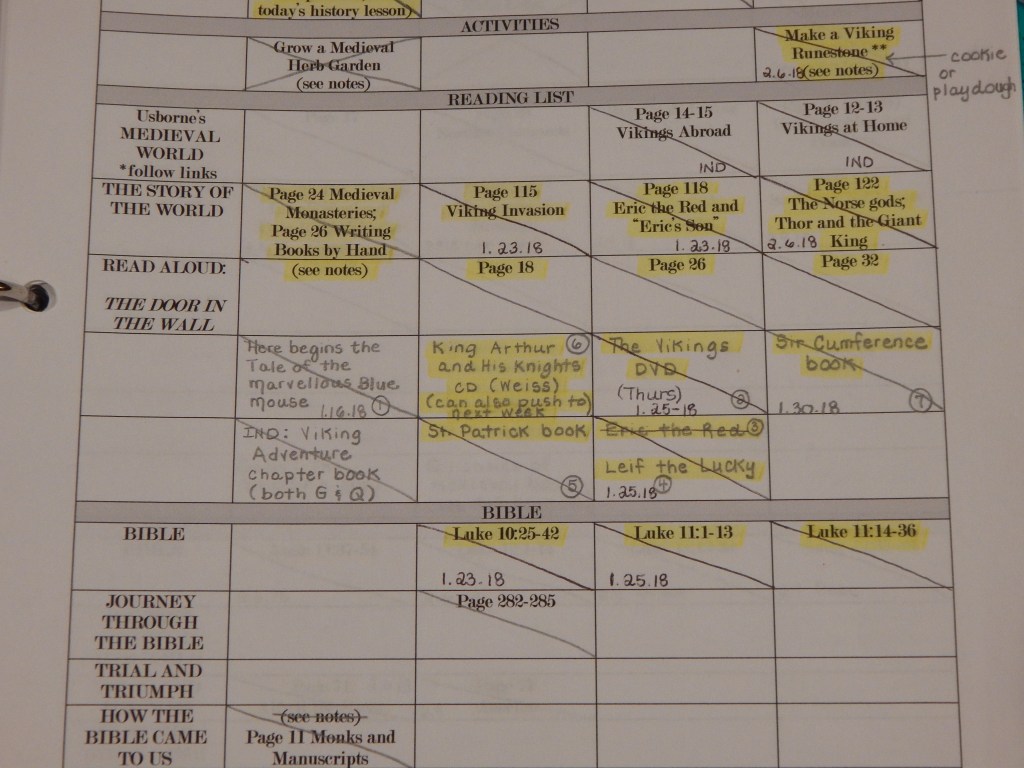 today's history lesson)
ACTIVITIES
Grow a Medieval
Herb Garden
(see notes)
Make a Viking
Runestone **
2.6.18 (see notes)
cookie
or
playdough
READING LIST
Usborne's
MEDIEVAL
WORLD
*follow links
Page 14-15
Vikings Abroad
IND
Page 12-13
Vikings at Home
IND
THE STORY OF
THE WORLD
Page 24 Medieval
Monasteries;
Page 26 Writing
Books by Hand
(see notes)
Page 115
Viking Invasion
1.23.18
Page 118
Eric the Red and
"Eric's Son"
1.23.18
Page 122
The Norse gods;
Thor and the Giant
2.6.18 King
READ ALOUD:
THE DOOR IN
THE WALL
Page 18
Page 26
Page 32
Here begins the
Tale of the
marvellous Blue
mouse 1.16.18 1
King Arthur 6
and His Knights
CD (Weiss)
(can also push to)
next week
The Vikings
DVD
(Thurs)
1.25-18 2
Sir Cumference
book
1.30.18 7
IND: Viking
Adventure
chapter book
(both G & Q)
St. Patrick book
5
Eric the Red 3
Leif the Lucky
1.25.18 4
BIBLE
BIBLE
Luke 10:25-42
1.23.18
Luke 11:1-13
1.25.18
Luke 11:14-36
JOURNEY
THROUGH
THE BIBLE
Page 282-285
TRIAL AND
TRIUMPH
HOW THE
BIBLE CAME
TO US
(see notes)
Page 11 Monks and
Manuscripts